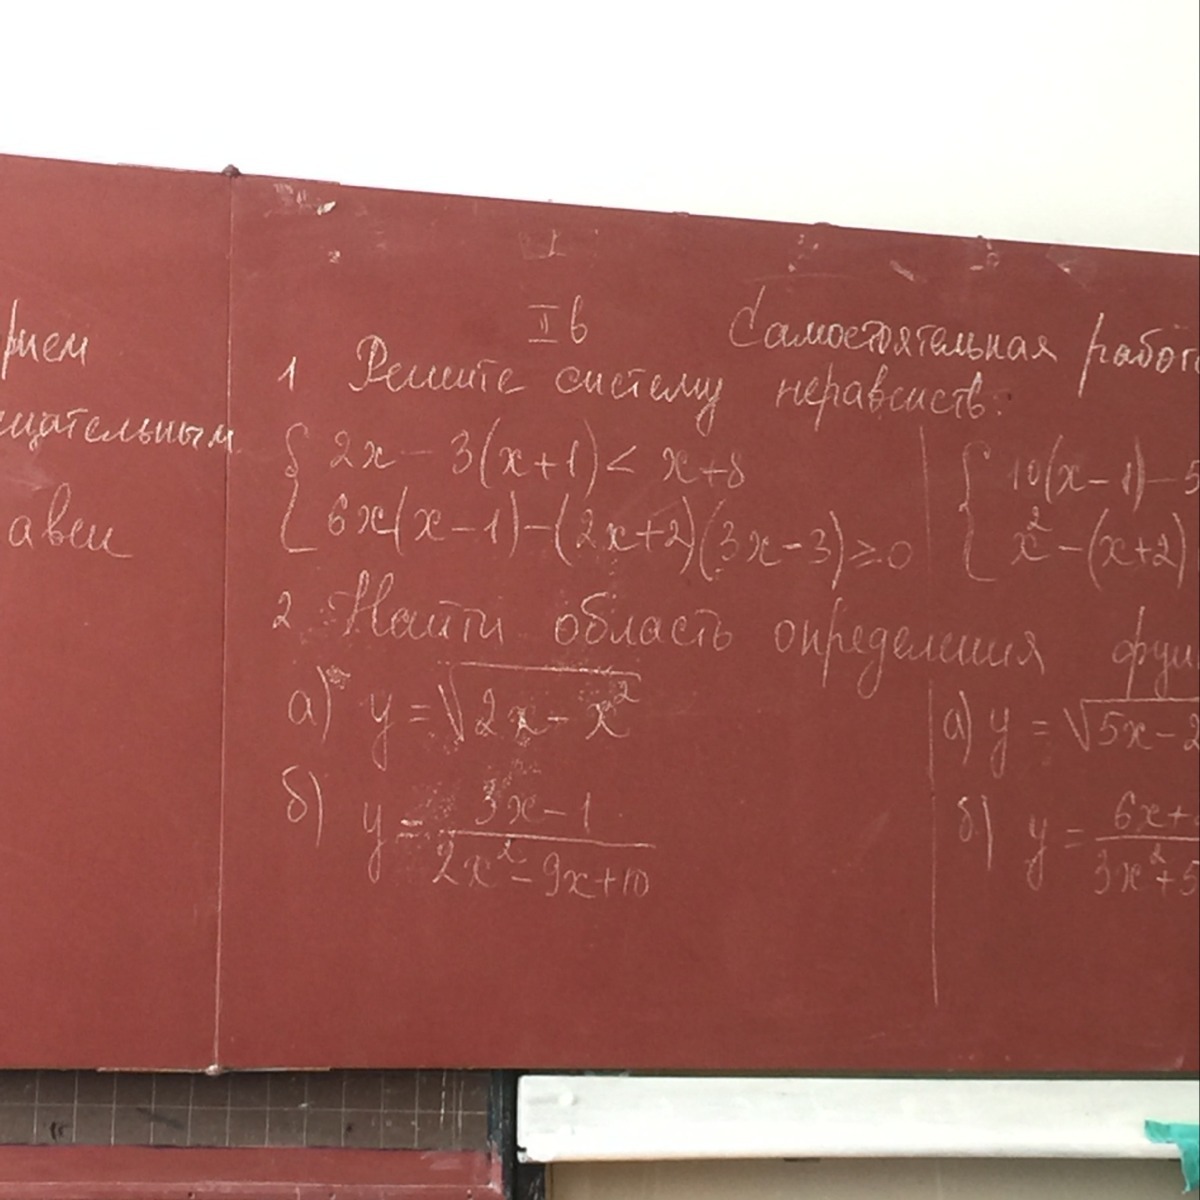 рием
ицательным
авен
II в Самостоятельная работ
1 Решите систему неравенств:
2x - 3(x+1) < x+8
6x(x-1)-(2x+2)(3x-3)≥0
2 Найти область определения фун
а) y = √2x - x²
б) y = 3x-1
2x²-9x+10
10(x-1)-5
x²-(x+2)
а) y = √5x-2
б) y = 6x+
3x²+5